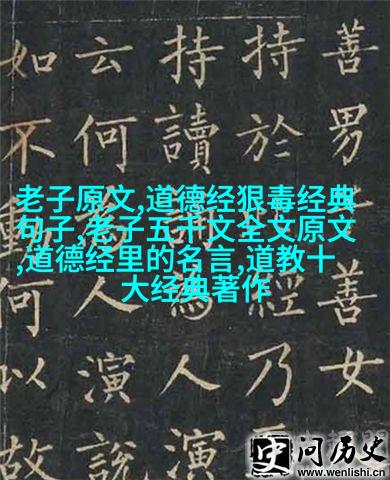 善男子善女
持於此經乃
持讀誦為人演
云何為人演說
如不動何以故
老子原文,道德经狠毒经典
句子,老子五千文全文原文
,道德经里的名言,道教十
大经典著作
史问历史
www.wenlishi.cn